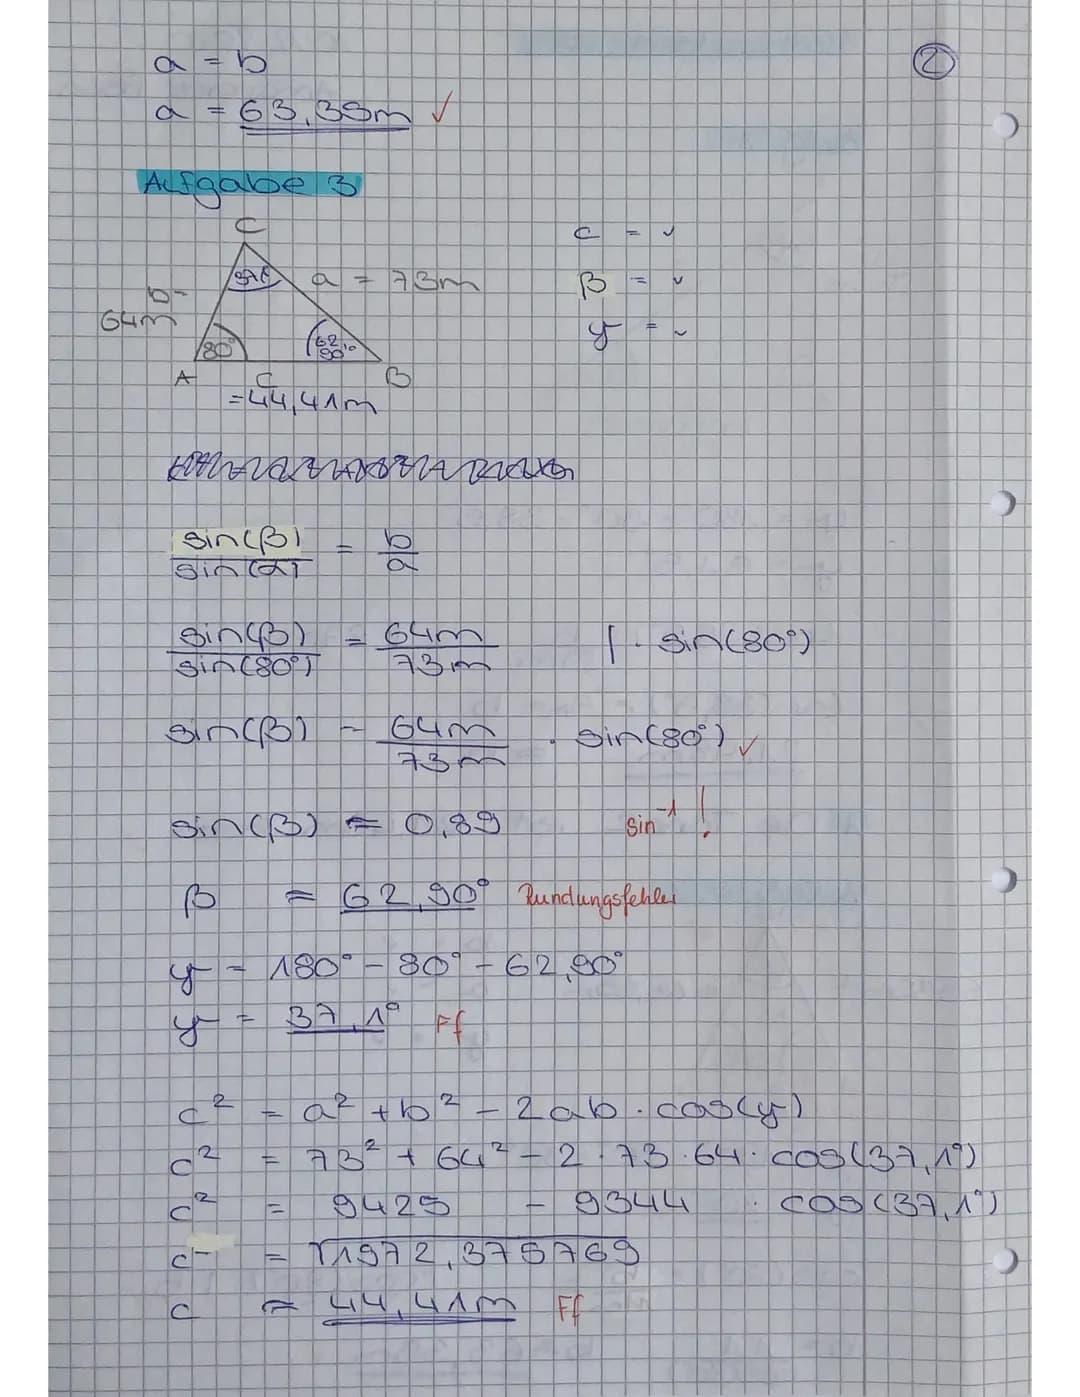 a = b
②
a = 63,39m ✓
Aufgabe 3
C
c = ✓
37,1°
a = 73m
β = ✓
b =
64m
y = ✓
80°
62,90°
A
c
B
= 44,41m
sin(β) / sin(α) = b / a
sin(β) / sin(80°) = 64m / 73m | · sin(80°)
sin(β) = 64m / 73m · sin(80°) ✓
sin(β) = 0,89 sin⁻¹ !
β = 62,90° Rundungsfehler
y = 180° - 80° - 62,90°
y = 37,1° Ff
c² = a² + b² - 2ab · cos(y)
c² = 73² + 64² - 2 · 73 · 64 · cos(37,1°)
c² = 9425 - 9344 · cos(37,1°)
c = √1972,375769
c ≈ 44,41m Ff